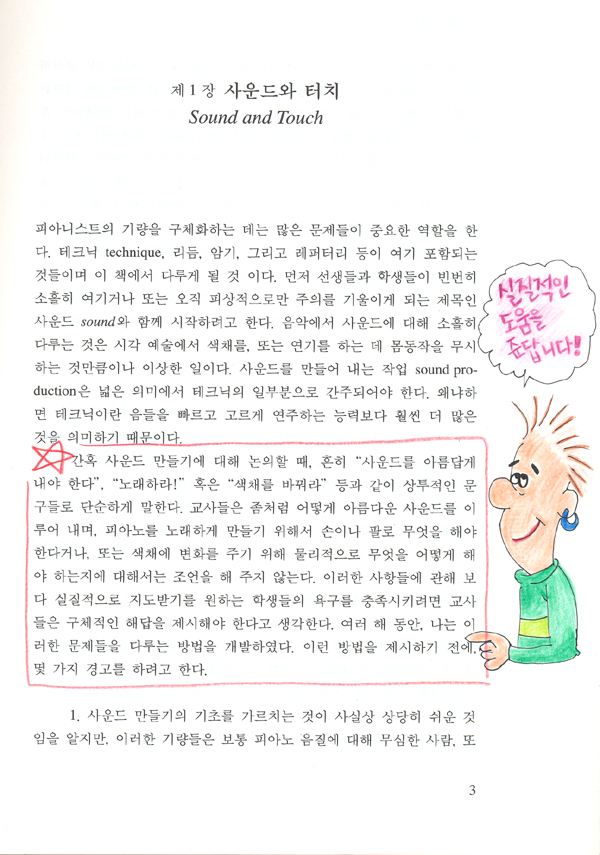 제 1 장 사운드와 터치
Sound and Touch
피아니스트의 기량을 구체화하는 데는 많은 문제들이 중요한 역할을 한
다. 테크닉 technique, 리듬, 암기, 그리고 레퍼터리 등이 여기 포함되는
것들이며 이 책에서 다루게 될 것 이다. 먼저 선생들과 학생들이 빈번히
소홀히 여기거나 또는 오직 피상적으로만 주의를 기울이게 되는 제목인
사운드 sound와 함께 시작하려고 한다. 음악에서 사운드에 대해 소홀히
다루는 것은 시각 예술에서 색채를, 또는 연기를 하는 데 몸동작을 무시
하는 것만큼이나 이상한 일이다. 사운드를 만들어 내는 작업 sound pro-
duction은 넓은 의미에서 테크닉의 일부분으로 간주되어야 한다. 왜냐하
면 테크닉이란 음들을 빠르고 고르게 연주하는 능력보다 훨씬 더 많은
것을 의미하기 때문이다.
간혹 사운드 만들기에 대해 논의할 때, 흔히 “사운드를 아름답게
내야 한다”, “노래하라!” 혹은 “색채를 바꿔라” 등과 같이 상투적인 문
구들로 단순하게 말한다. 교사들은 좀처럼 어떻게 아름다운 사운드를 이
루어 내며, 피아노를 노래하게 만들기 위해서 손이나 팔로 무엇을 해야
한다거나, 또는 색채에 변화를 주기 위해 물리적으로 무엇을 어떻게 해
야 하는지에 대해서는 조언을 해 주지 않는다. 이러한 사항들에 관해 보
다 실질적으로 지도받기를 원하는 학생들의 욕구를 충족시키려면 교사
들은 구체적인 해답을 제시해야 한다고 생각한다. 여러 해 동안, 나는 이
러한 문제들을 다루는 방법을 개발하였다. 이런 방법을 제시하기 전에,
몇 가지 경고를 하려고 한다.
1. 사운드 만들기의 기초를 가르치는 것이 사실상 상당히 쉬운 것
임을 알지만, 이러한 기량들은 보통 피아노 음질에 대해 무심한 사람, 또
3
실질적인
도움을
죤답니다!